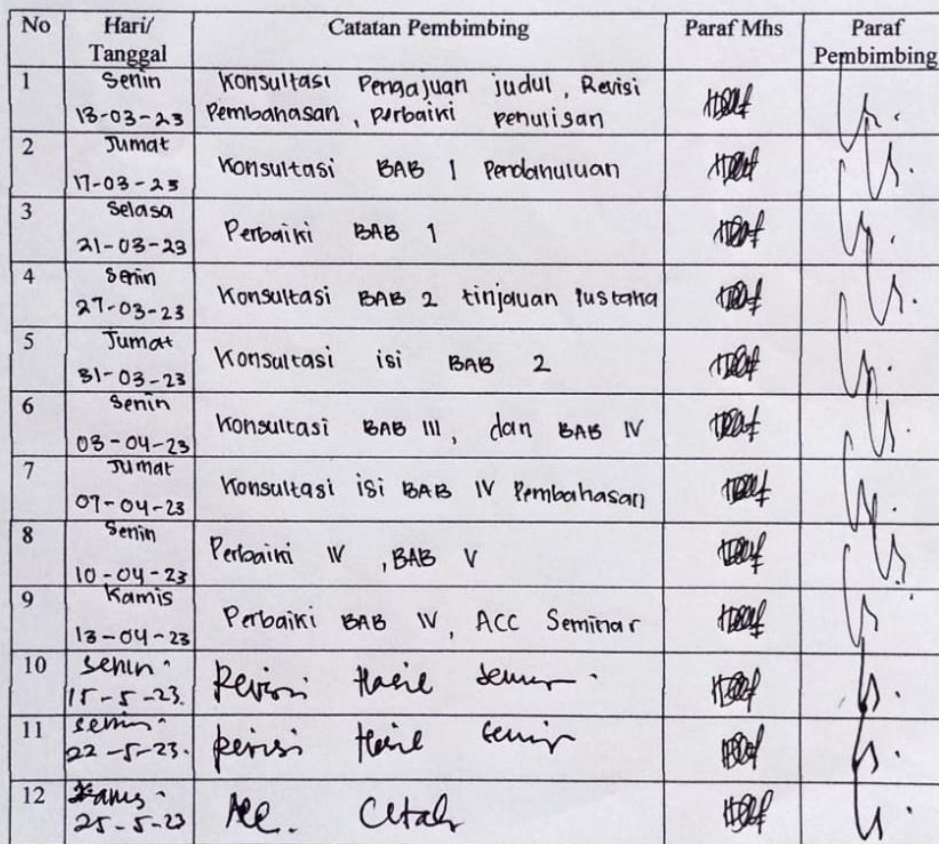 No Hari/ Catatan Pembimbing Paraf Mhs Paraf
Tanggal Pembimbing
1 Senin Konsultasi Pengajuan judul, Revisi
13-03-23 Pembahasan, perbaiki penulisan
2 Jumat
17-03-23 Konsultasi BAB 1 Pendahuluan
3 Selasa
21-03-23 Perbaiki BAB 1
4 Senin
27-03-23 Konsultasi BAB 2 tinjauan Pustaka
5 Jumat
31-03-23 Konsultasi isi BAB 2
6 Senin
03-04-23 Konsultasi BAB III, dan BAB IV
7 Jumat
07-04-23 Konsultasi isi BAB IV Pembahasan
8 Senin
10-04-23 Perbaiki IV, BAB V
9 Kamis
13-04-23 Perbaiki BAB IV, ACC Seminar
10 Senin
15-5-23. Revisi Hasil
11 Senin
22-5-23. Revisi Hasil
12 Kamis
25-5-23 Acc. Cetak